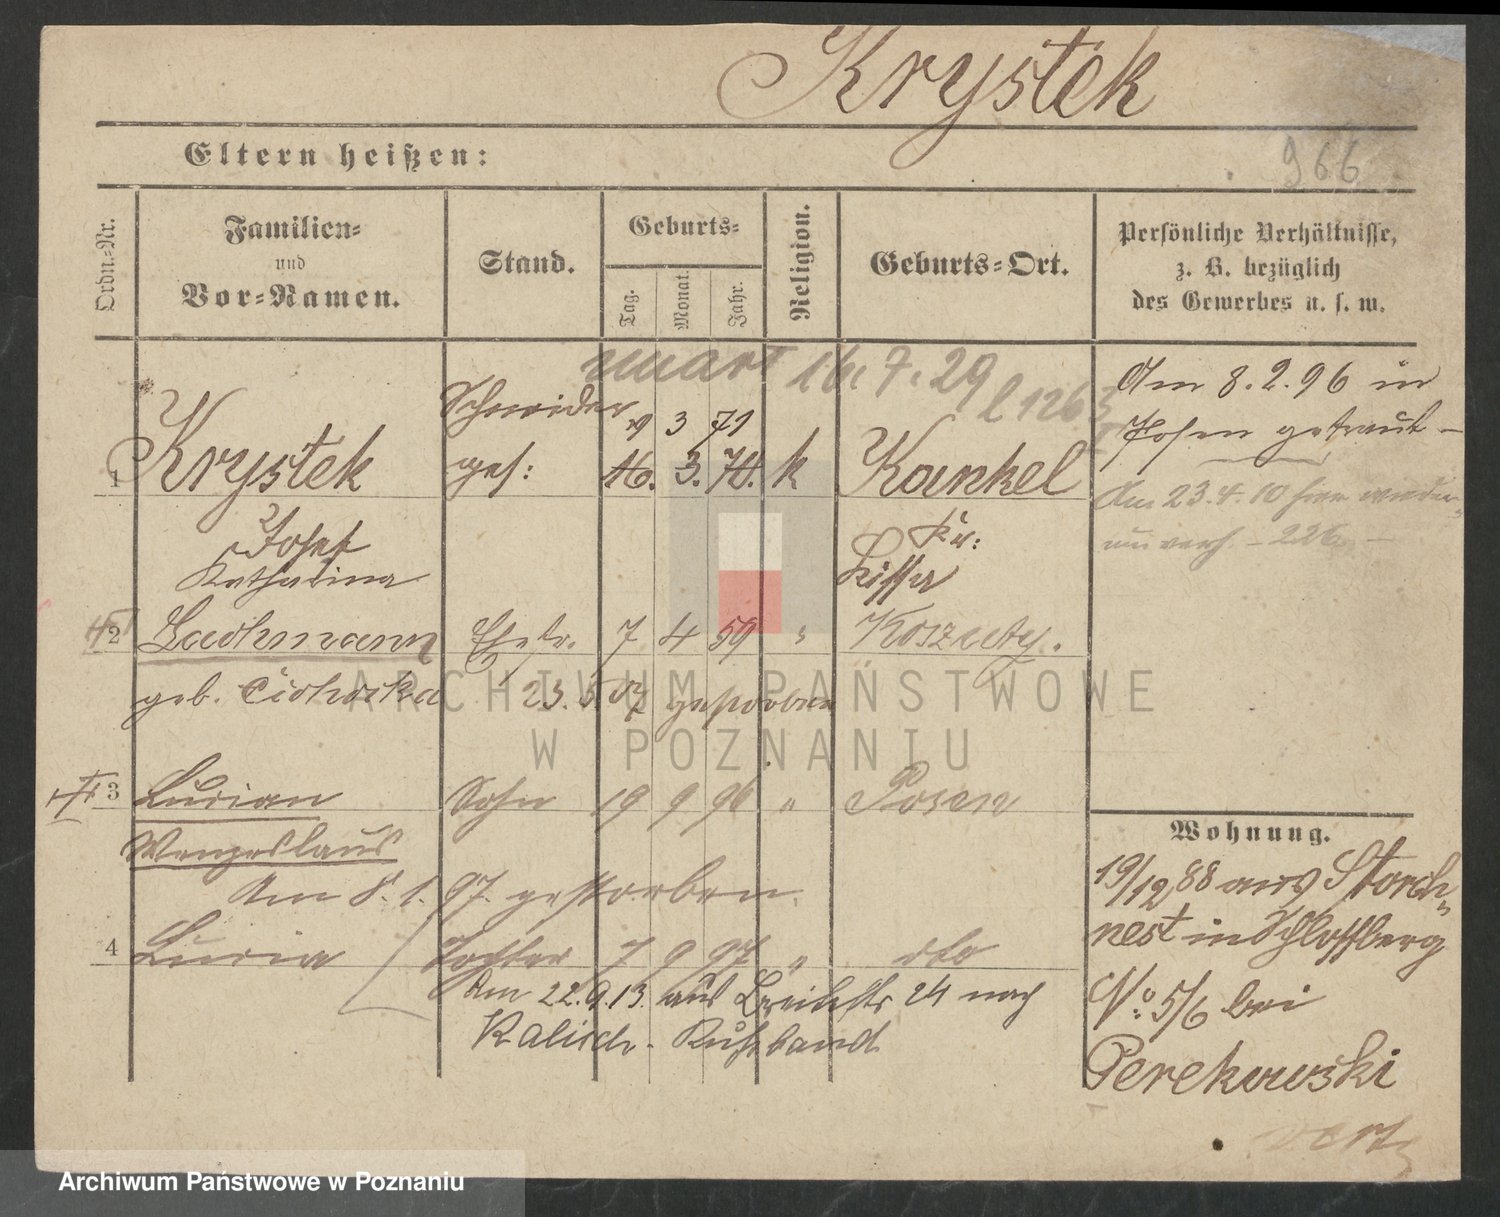 Krystek
Eltern heißen:
966
Ordn.-Nr.
Familien-
und
Vor-Namen.
Stand.
Geburts-
Tag.
Monat.
Jahr.
Religion.
Geburts-Ort.
Persönliche Verhältnisse,
z. B. bezüglich
des Gewerbes u. s. w.
16. 7. 29
Schneider 3 71
Am 8. 2. 96 in
Posen getraut –
1 Krystek ges: 16. 3. 70. k Kankel
Am 23. 4. 10 hier wieder-
um verh. – 226 –
Josef Kr:
Katharina Lissa
2 Lachmann Ehefr. 7 4 59 " Koszuty.
geb. Cichocka 23. 5 07 gestorben
ARCHIWUM PAŃSTWOWE
W POZNANIU
3 Lucian Sohn 19 9 96 " Posen
Wenzeslaus
Am 8. 1. 97. gestorben.
4 Lucia Tochter 7 9 97 " dto
Am 22. 9. 13. aus Breitestr 24 nach
Kalisch - Rußland
Wohnung.
19/12 88 aus Storch-
nest in Schloßberg
No: 5/6 bei
Perekowski
vert
Archiwum Państwowe w Poznaniu